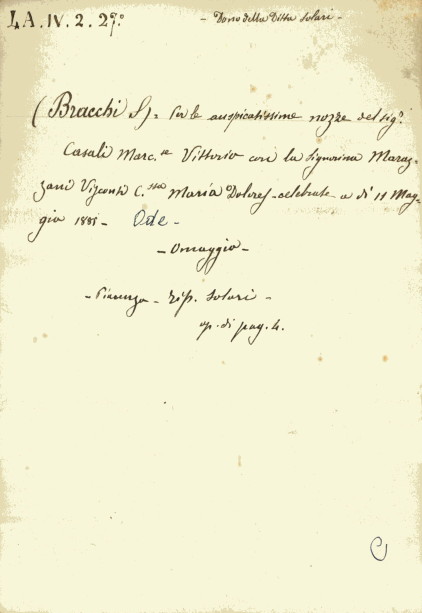 LA.IV.2.27.°
- Dono della Ditta Solari -
(Bracchi S). Per le auspicatissime nozze del sig.r
Casali Marc.se Vittorio con la signorina Maraz-
zani Visconti C.ssa Maria Dolores - celebrate a dì 11 Mag-
gio 1885 - Ode -
- Omaggio -
- Piacenza - tip. Solari -
op. di pag. 4.
C